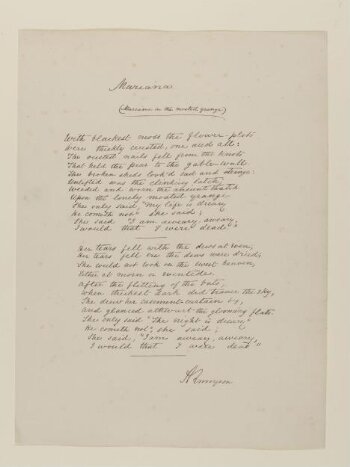 Mariana
(Mariana in the moated grange)
With blackest moss the flower-plots
Were thickly crusted, one and all:
The rusted nails fell from the knots
That held the pear to the gable-wall.
The broken sheds look'd sad and strange:
Unlifted was the clinking latch;
Weeded and worn the ancient thatch
Upon the lonely moated grange.
She only said, "My life is dreary,
He cometh not," she said;
She said "I am aweary, aweary,
I would that I were dead!"
Her tears fell with the dews at even,
Her tears fell ere the dews were dried;
She could not look on the sweet heaven,
Either at morn or eventide.
After the flitting of the bats,
When thickest dark did trance the sky,
She drew her casement-curtain by,
And glanced athwart the glooming flats.
She only said "The night is dreary
He cometh not," she said;
She said, "I am aweary, aweary,
I would that I were dead"
A Tennyson